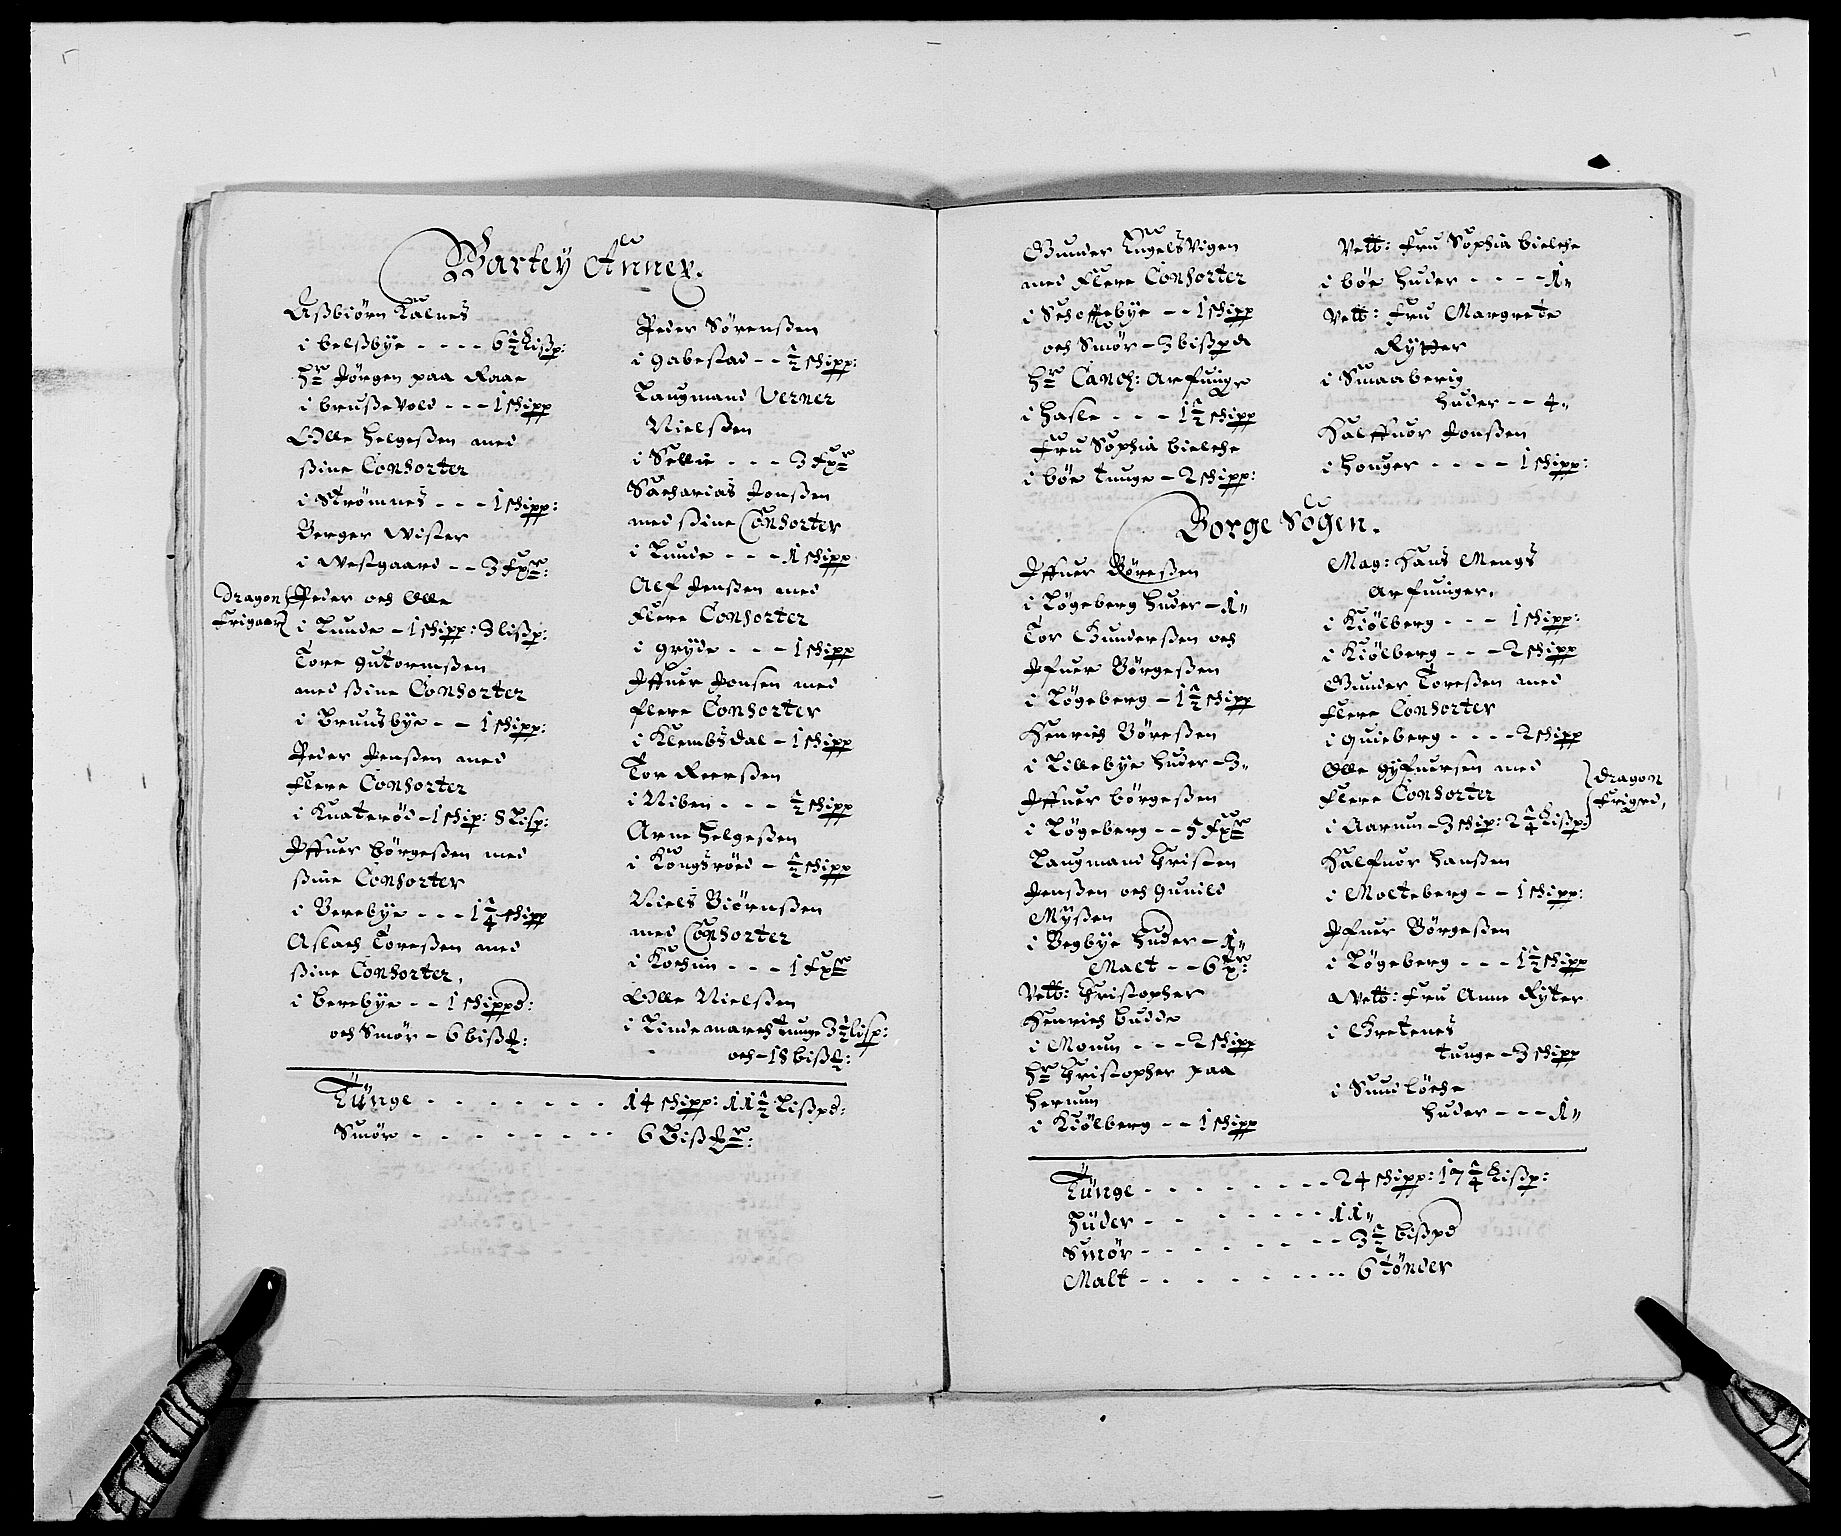 Wartey Annex.
Aßbiörn Kalnes
i belsbÿe - - - - 6½ Lißp:
Hr Jörgen paa Raae
i brußevold - - - 1 Schipp
Olle Helgeßen med
ßine Consorter
i Strömnes - - - 1 schipp:
Berger Wister
i Westgaard - - 3 fxr:
Dragon
Frigaar
Peder och Olle
i Lunde - 1 schipp: 3 lißp:
Tore gutormßen
med ßine Consorter
i Bruusbÿe - - 1 schipp:
Peder Jenßen med
flere Consorter
i Knateröd - 1 schip: 8 Lisp:
Iffuer börgeßen med
ßine Consorter
i Berebÿe - - - 1¼ schipp
Aslach Toreßen med
ßine Consorter,
i berebÿe - - 1 schippd:
och Smör - 6 biß℔:
Peder Sörenßen
i gabestad - - ½ schipp:
Laugmand Verner
Nielßen
i Sellie - - - 3 fxr
Sacharias Jonßen
med ßine Consorter
i Lunde - - - 1 schipp
Alf Jenßen med
flere Consorter
i grÿde - - - 1 schipp
Iffuer Jonsen med
flere Consorter
i Klembsdal - 1 schipp
Tor Reerßen
i Niben - - - ½ schipp
Arne Helgeßen
i Kongsröed - ½ schipp
Niels Biörnßen
med Consorter
i Kochim - - - 1 fxr
Olle Nielßen
i Lindemarch tunge 3½ lisp:
och - 18 biß℔:
Tünge - - - - - - - 14 schipp: 11½ Lißpd:
Smör - - - - - - - - 6 Biß℔r:
Gunder Engelsvigen
med flere Consorter
i Schoffebÿe - - 1 schipp
och Smör - 3 bißpd
Hr Canch: arfuinge
i Hasle - - - 1½ schipp
fru Sophia bielche
i böe tunge - 2 schipp:
Velb: fru Sophia bielche
i böe huder - - - - 1,,
Velb: fru Margrete
Rÿtter
i Smaaberig
huder - - 4,,
Halffuor Jonßen
i houger - - - - 1 schipp:
Borge Sogen.
Iffuer Böreßen
i Tögeberg huder - 1,,
Tor Gunderßen och
Ifuer Börgeßen
i Tögeberg - 1½ schipp
Henrich Böreßen
i Lillebÿe huder - 3,,
Iffuer börgeßen
i Tögeberg - - 5 fxr
Laugmand Christen
Jenßen och gunild
Mÿßen
i Begbÿe huder - 1,,
Malt - - 6 xr:
Velb: Christopher
Henrich budde
i Moum - - - 2 schipp
Hr Christopher paa
Hernum
i Kiölberg - - 1 schipp
Mag: Hans Mengs
arfuinger,
i Kiölberg - - - 1 schipp:
i Kiölberg - - - 2 schipp
Gunder Toreßen med
flere Consorter
i guieberg - - - - 2 schipp
Olle gÿfuersen med
flere Consorter
i Aarum - 3 schip: 2¼ Lißp:
Dragon
Frigrd,
Halfuor Hanßen
i Molteberg - - 1 schipp:
Ifuer Börgeßen
i Tögeberg - - - 1½ schipp
Velb: fru Anne Rÿter
i Gretenes
tunge - 3 schipp
i Sundlöche
huder - - - 1,,
Tünge - - - - - - - - 24 schipp: 17¼ Lißp:
Hüder - - - - - - - - 11,,
Smör - - - - - - - - 3½ bißpd
Malt - - - - - - - - 6 tönder